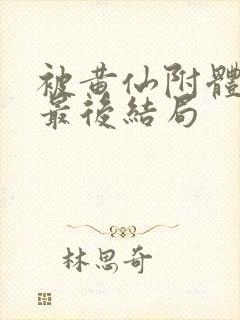 被黄仙附體
最後結局
林思奇